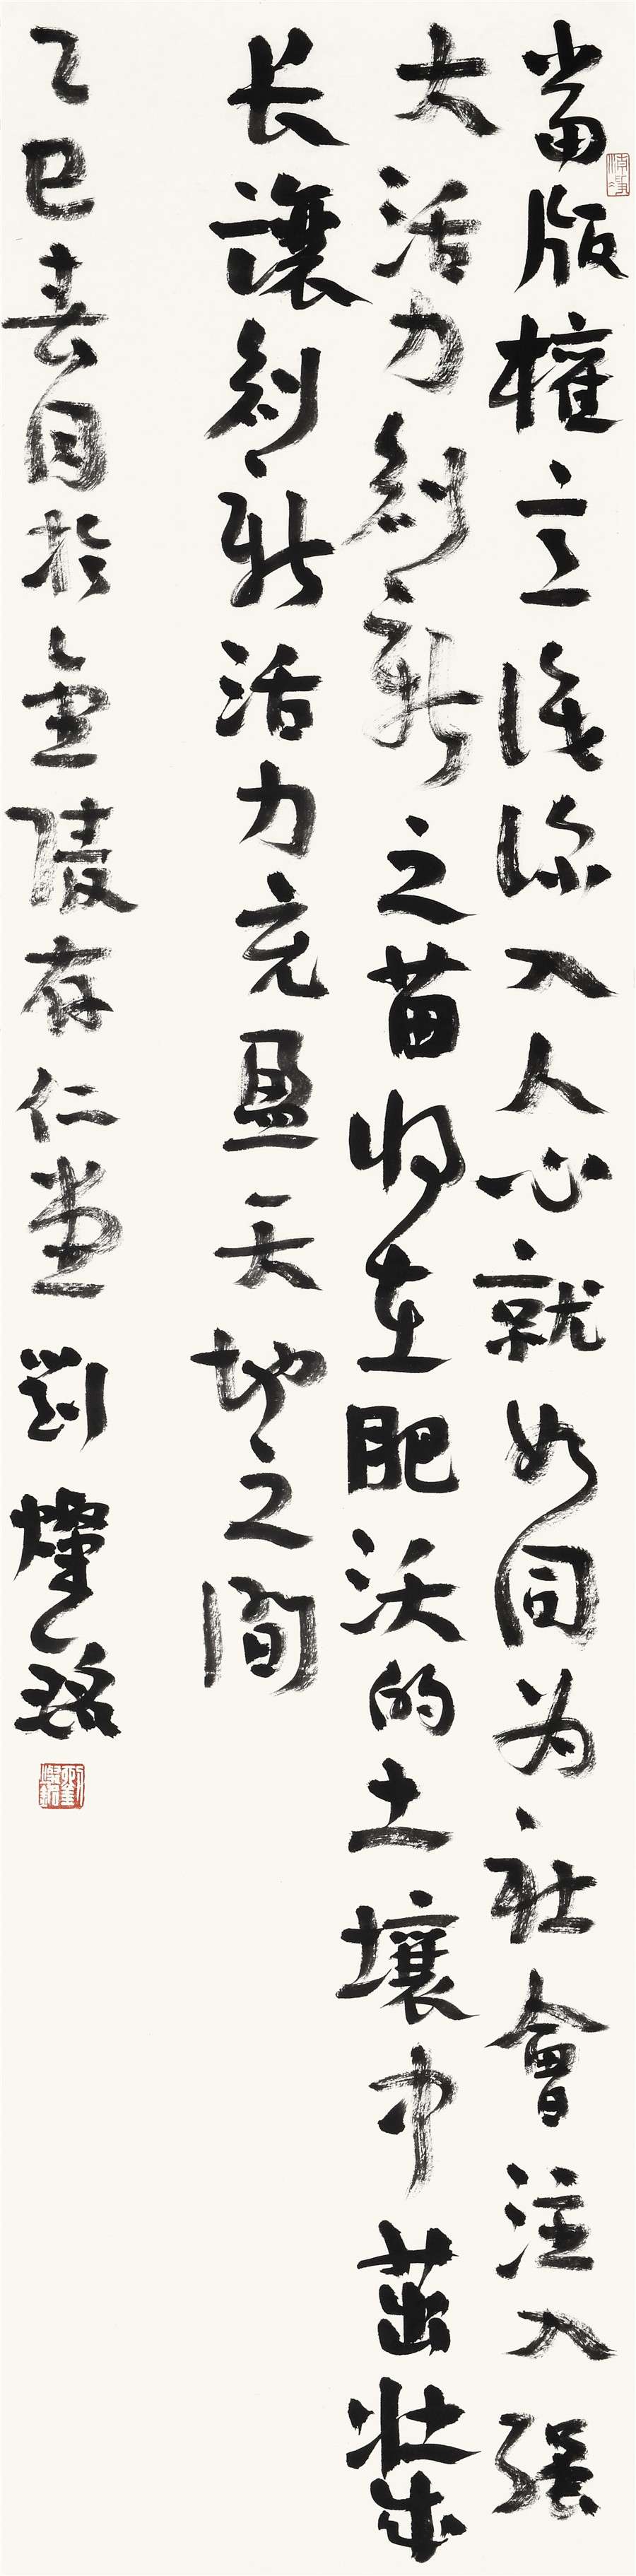 當版權意識深入人心就如同为社會注入强
大活力創新之苗将在肥沃的土壤中茁壯成
长讓創新活力充盈天地之间
乙巳春月於金陵存仁堂劉燦銘
劉燦銘